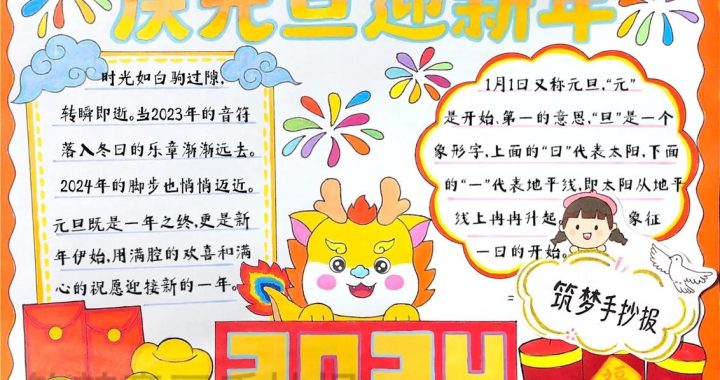 庆元旦迎新年
时光如白驹过隙,
转瞬即逝。当2023年的音符
落入冬日的乐章渐渐远去。
2024年的脚步也悄悄迈近。
元旦既是一年之终,更是新
年伊始,用满腔的欢喜和满
心的祝愿迎接新的一年。
1月1日又称元旦,“元”
是开始、第一的意思,“旦”是一个
象形字,上面的“日”代表太阳,下面
的“一”代表地平线,即太阳从地平
线上冉冉升起。
象征
一日的开始。
筑梦手抄报
2024
福